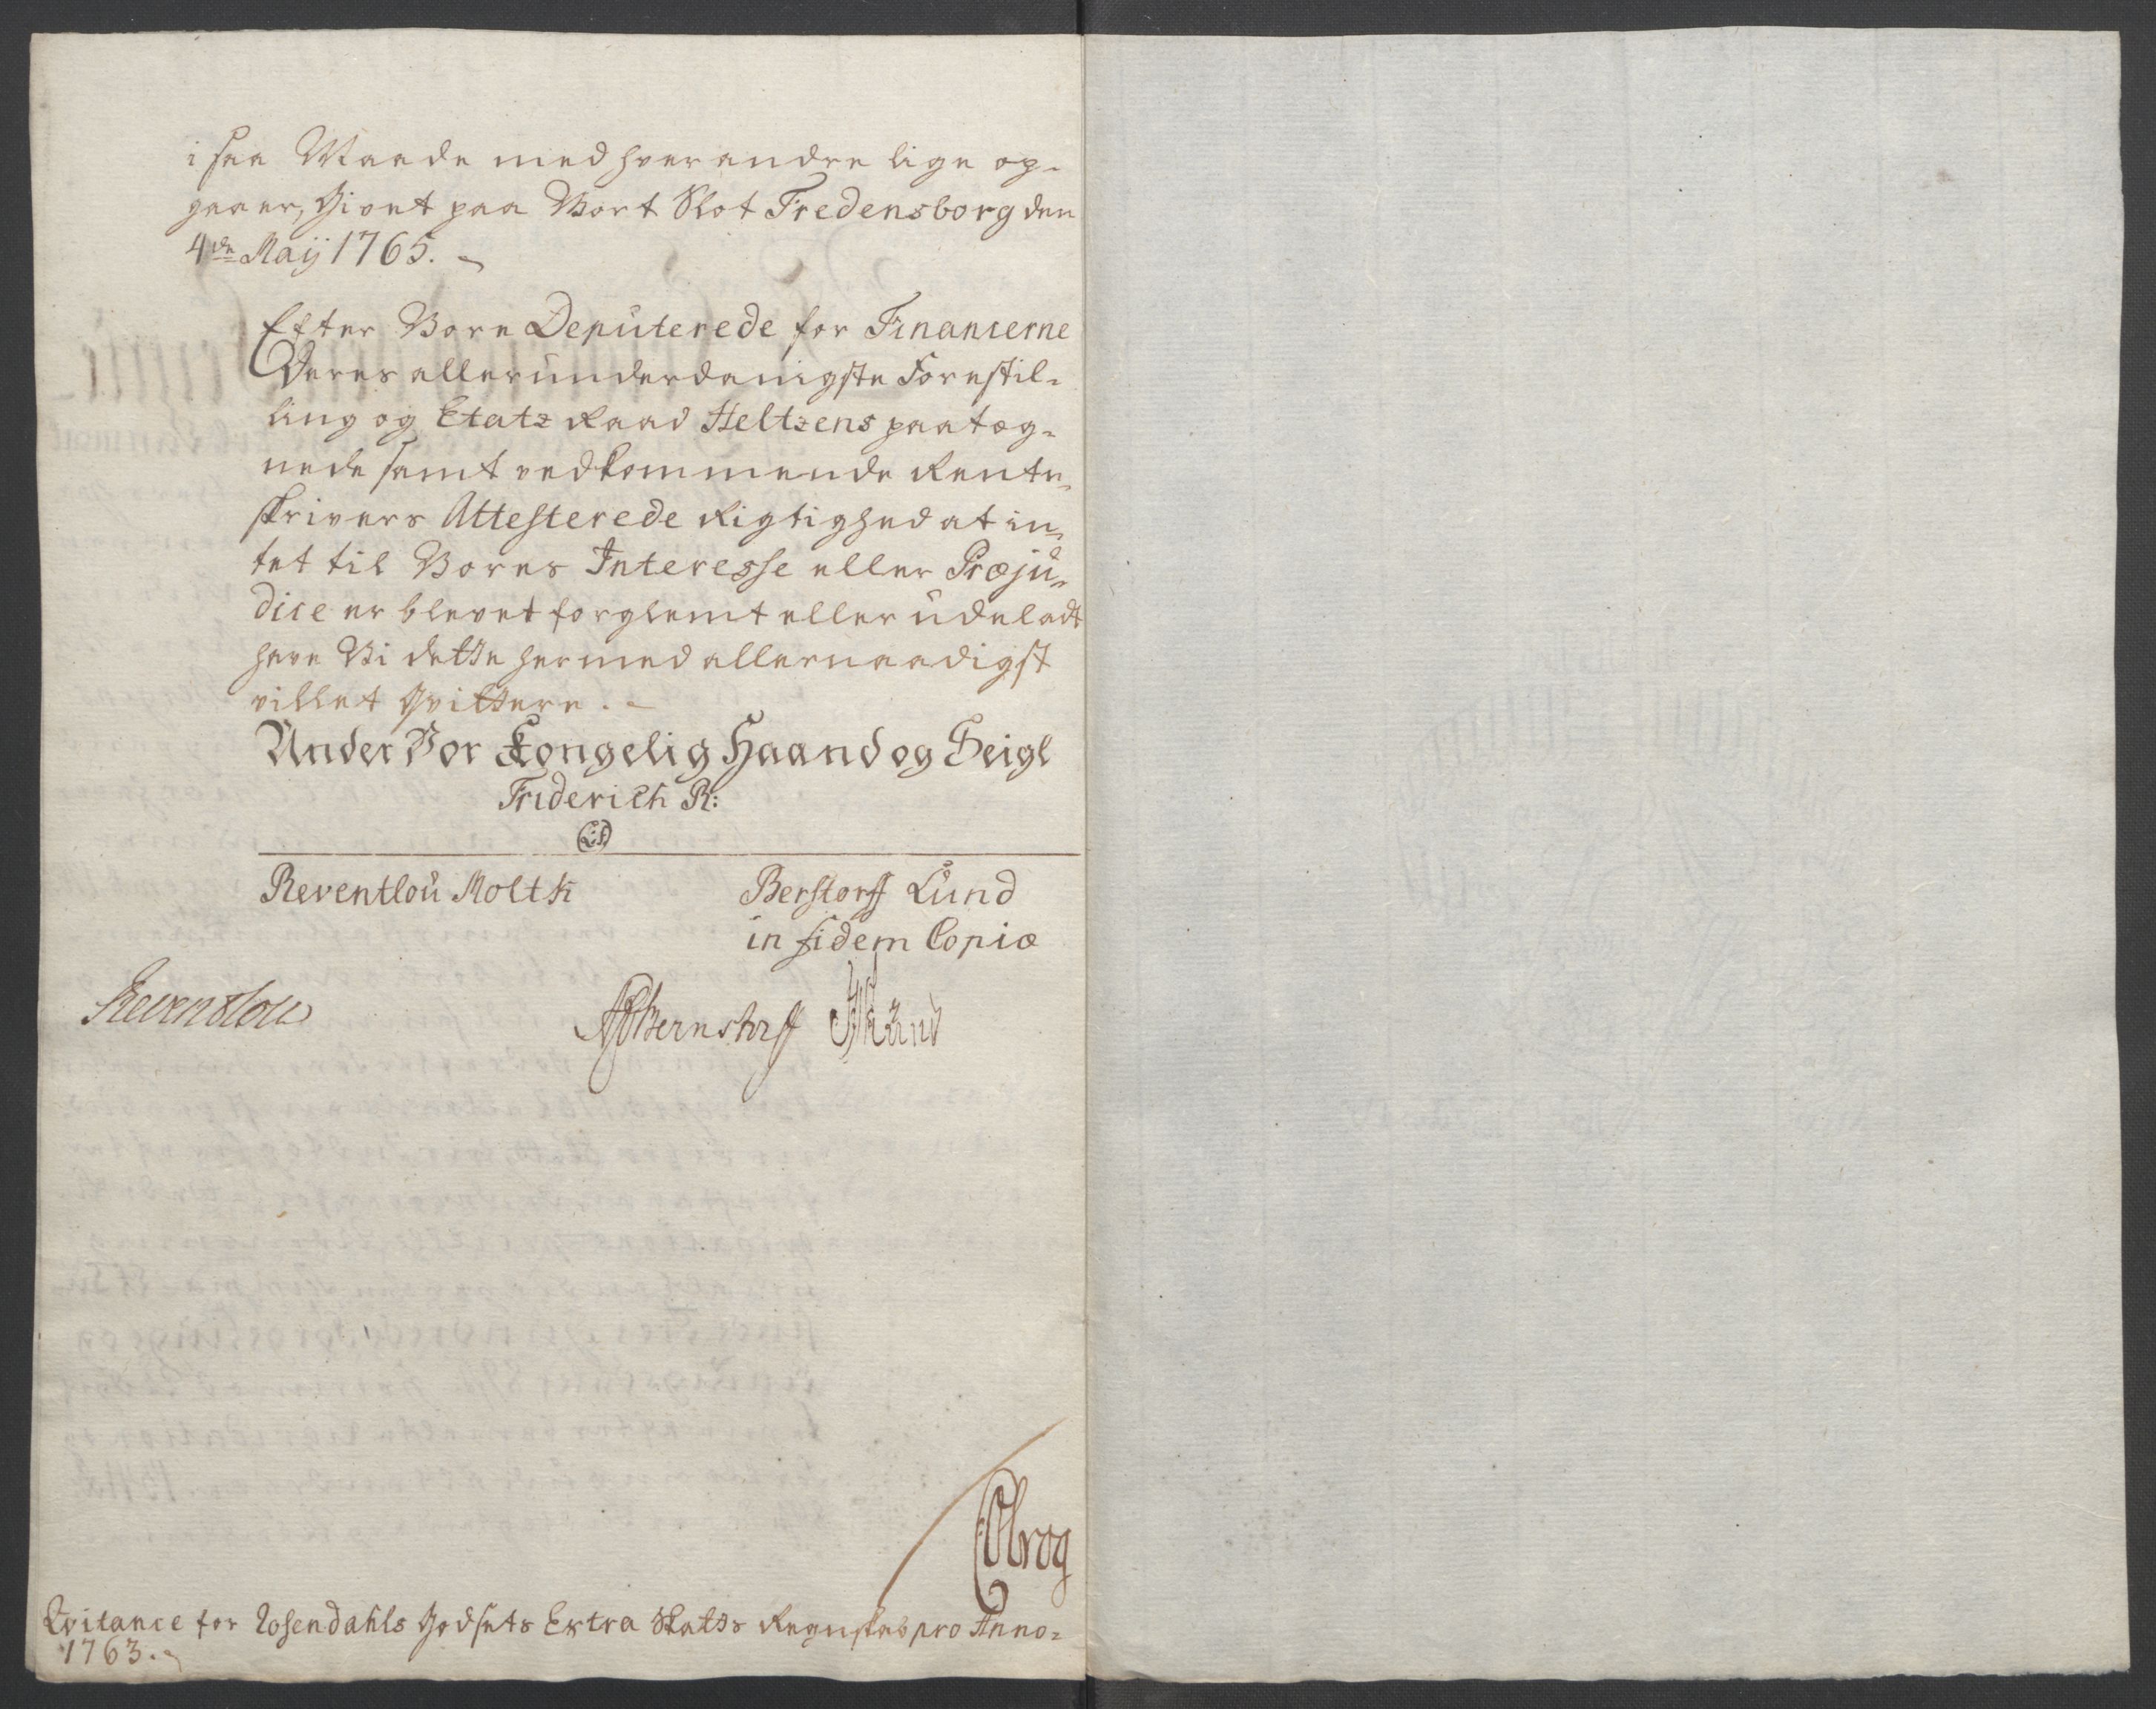 i saa Maade med hverandre lige op-
gaaer, Givet paa Vort Slot Fredensborg den
4de Maij 1765.
Efter Vore Deputerede for Financerne
Deres allerunderdanigste Forestil-
ling og Etatz Raad Heltzens paateg-
nede samt vedkommende Rente-
skrivers Attesterede Rigtighed at in-
tet til Vores Interesse eller Præju-
dice er blevet forglemt eller udeladt
have Vi dette hermed allernaadigst
villet Qvittere.
Under Vor Kongelig Haand og Seigl
Friderich R:
(L:S)
Reventlou Moltk Berstorff Lund
in fidem Copiæ
Reventlou
Bernstorff Lund
Qvitance for Rosendahls Godsets Extra Skatts Regnskab pro Anno-
1763.